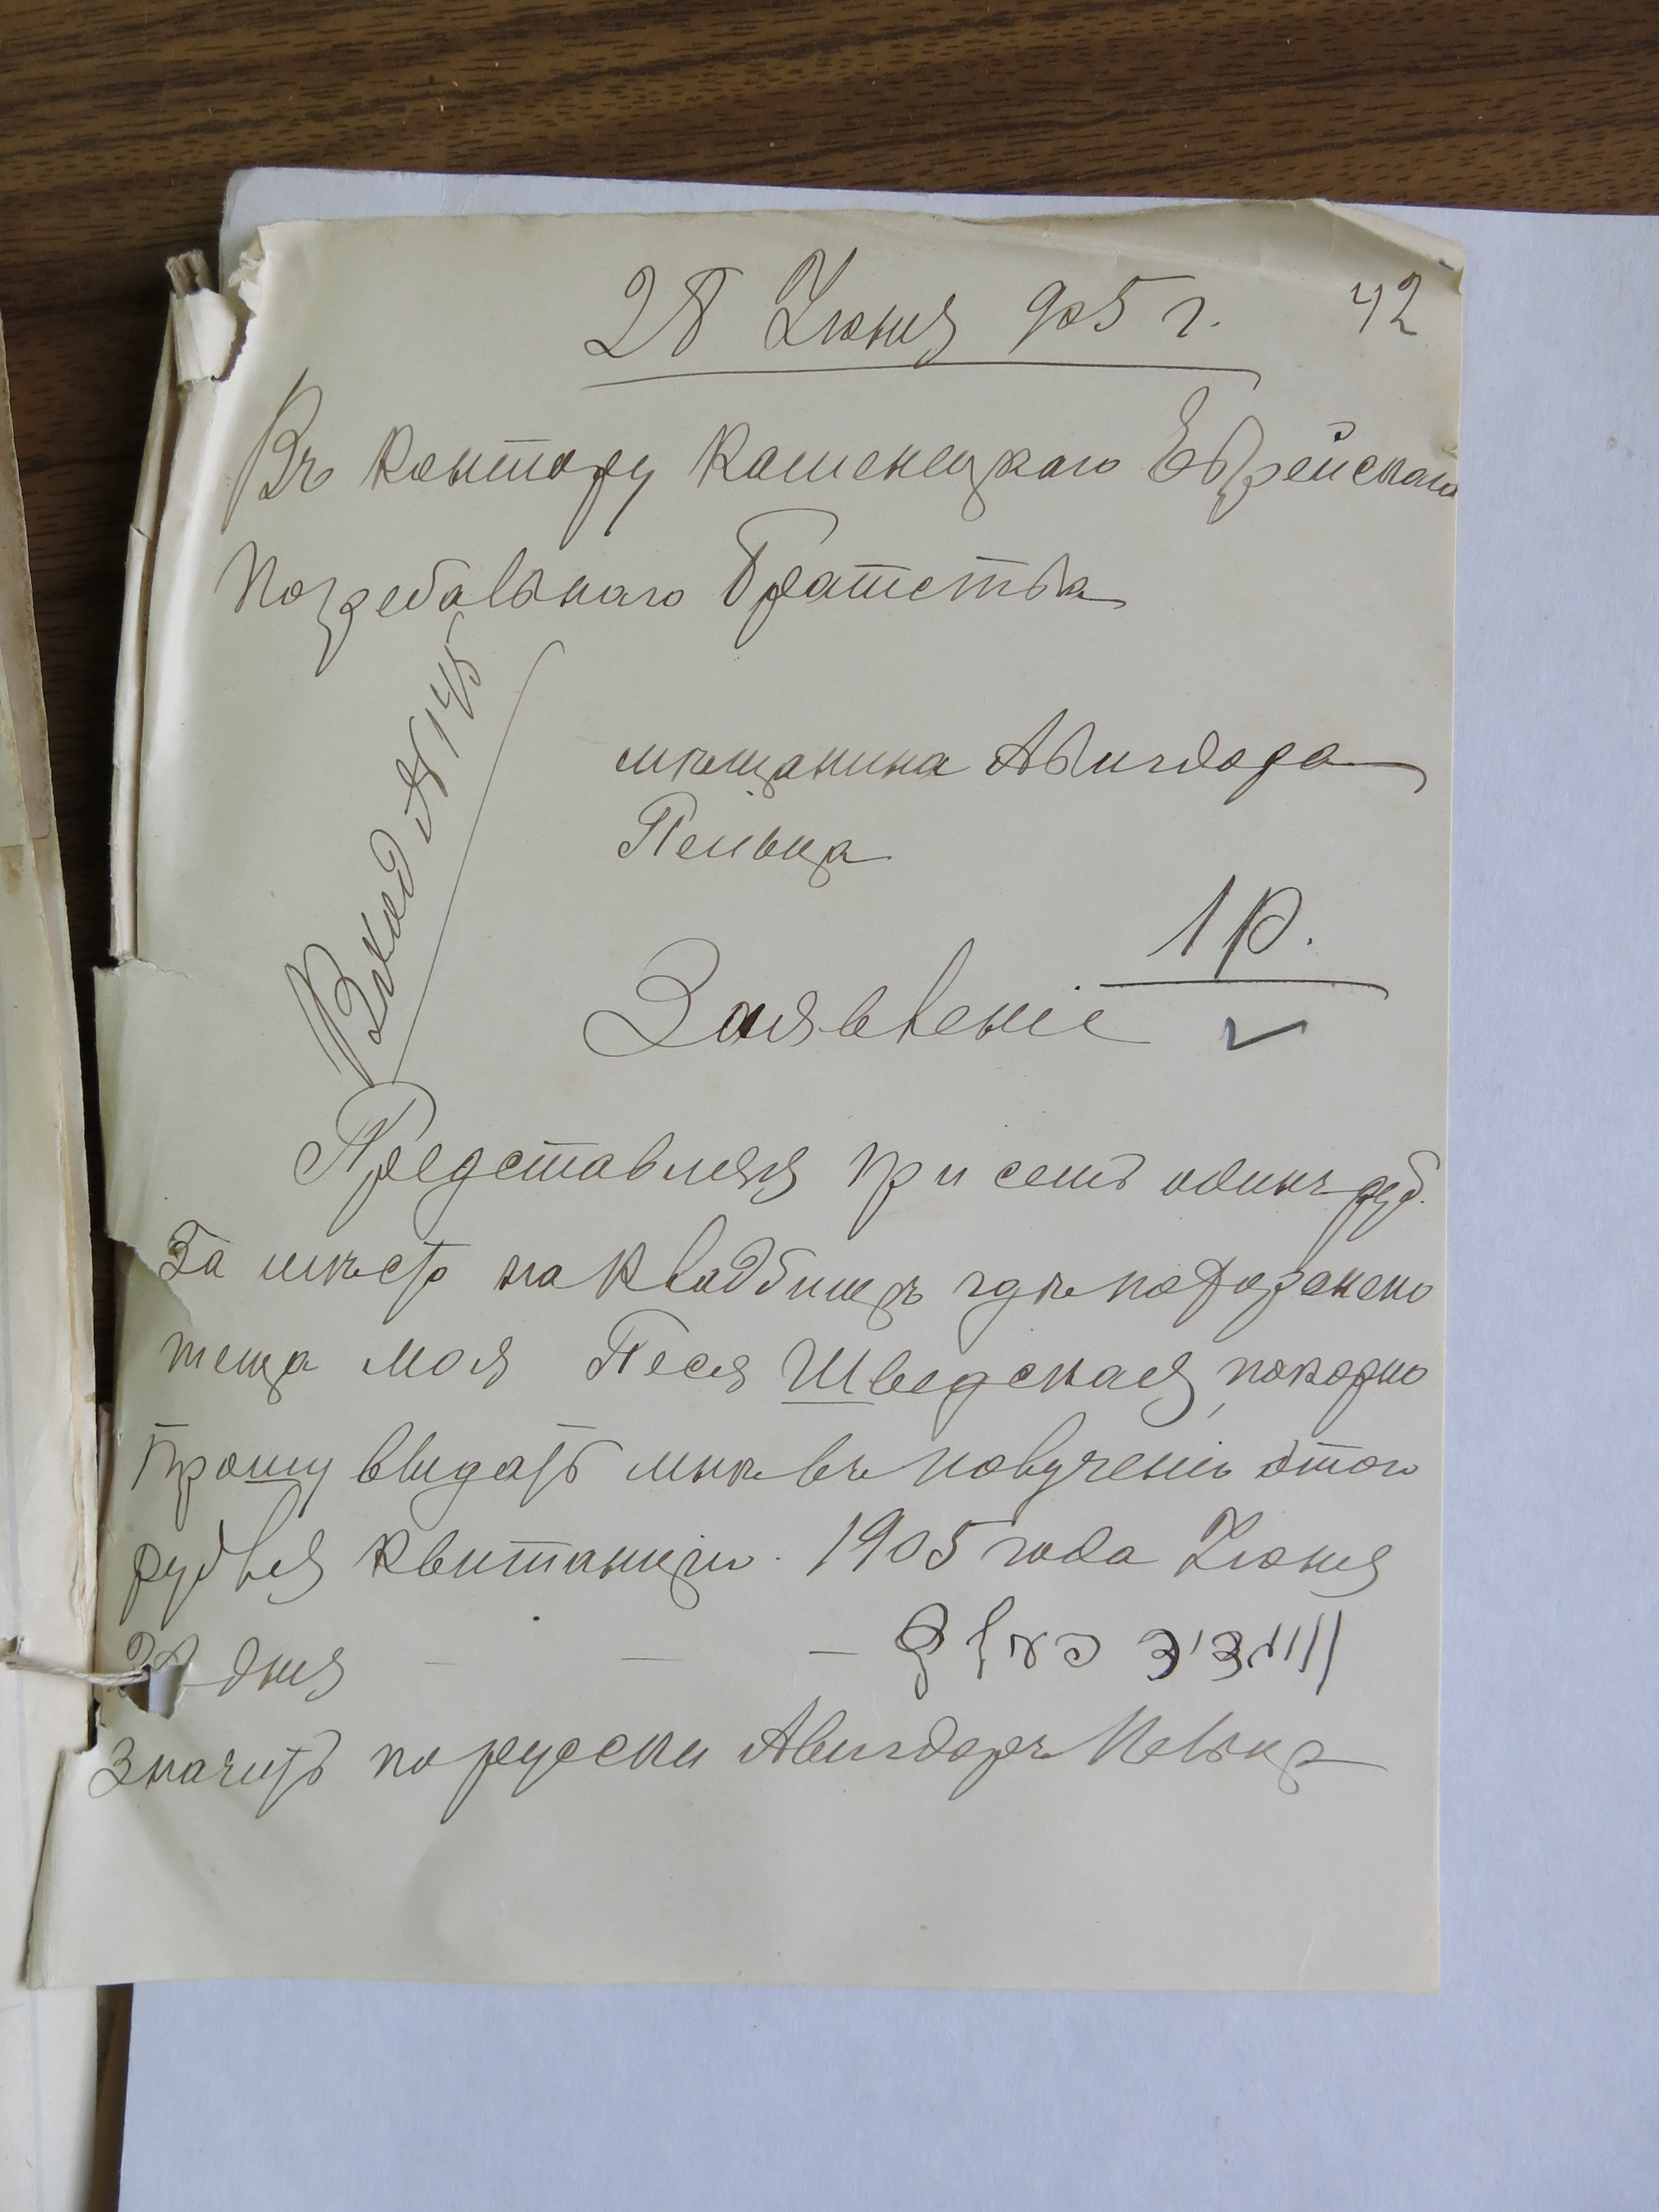 28 Июня 905 г. 42
Въ Контору Каменецкаго Еврейскаго
Погребальнаго Братства
Вход № 145
мѣщанина Авигдора
Пельца
1 р.
Заявленіе
Представляя при семъ одинъ руб.
За мѣсто на Кладбищѣ гдѣ похоронено
теща моя Песя Шведская, покорно
Прошу выдать мнѣ въ получени этого
рубля Квитанцію. 1905 года Июня
28 дня
Значитъ по русски Авигдоръ Пельцъ